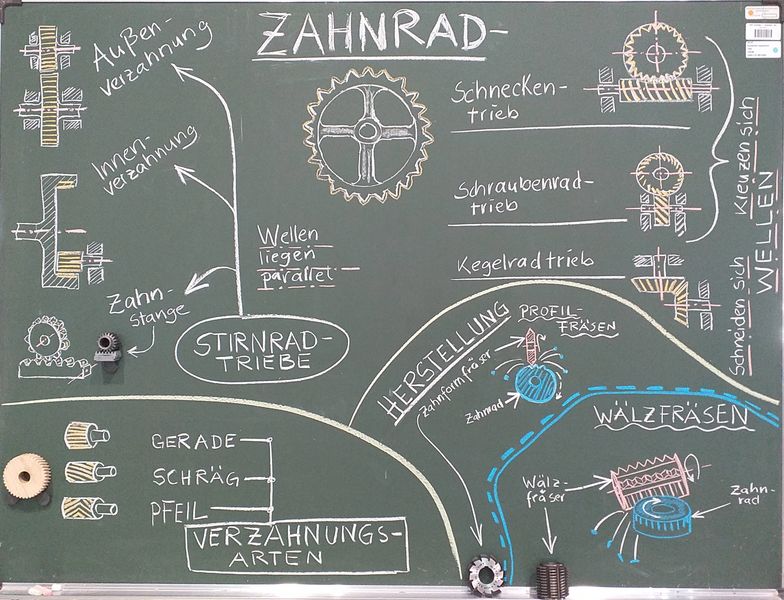 ZAHNRAD-
Außen-
verzahnung
Innen-
verzahnung
Zahn-
stange
Wellen
liegen
parallel
STIRNRAD-
TRIEBE
Schnecken-
trieb
Schraubenrad-
trieb
Kegelradtrieb
Kreuzen sich
Schneiden sich
WELLEN
HERSTELLUNG
PROFIL-
FRÄSEN
Zahnformfräser
Zahnrad
WÄLZFRÄSEN
Wälz-
fräser
Zahn-
rad
GERADE
SCHRÄG
PFEIL
VERZAHNUNGS-
ARTEN